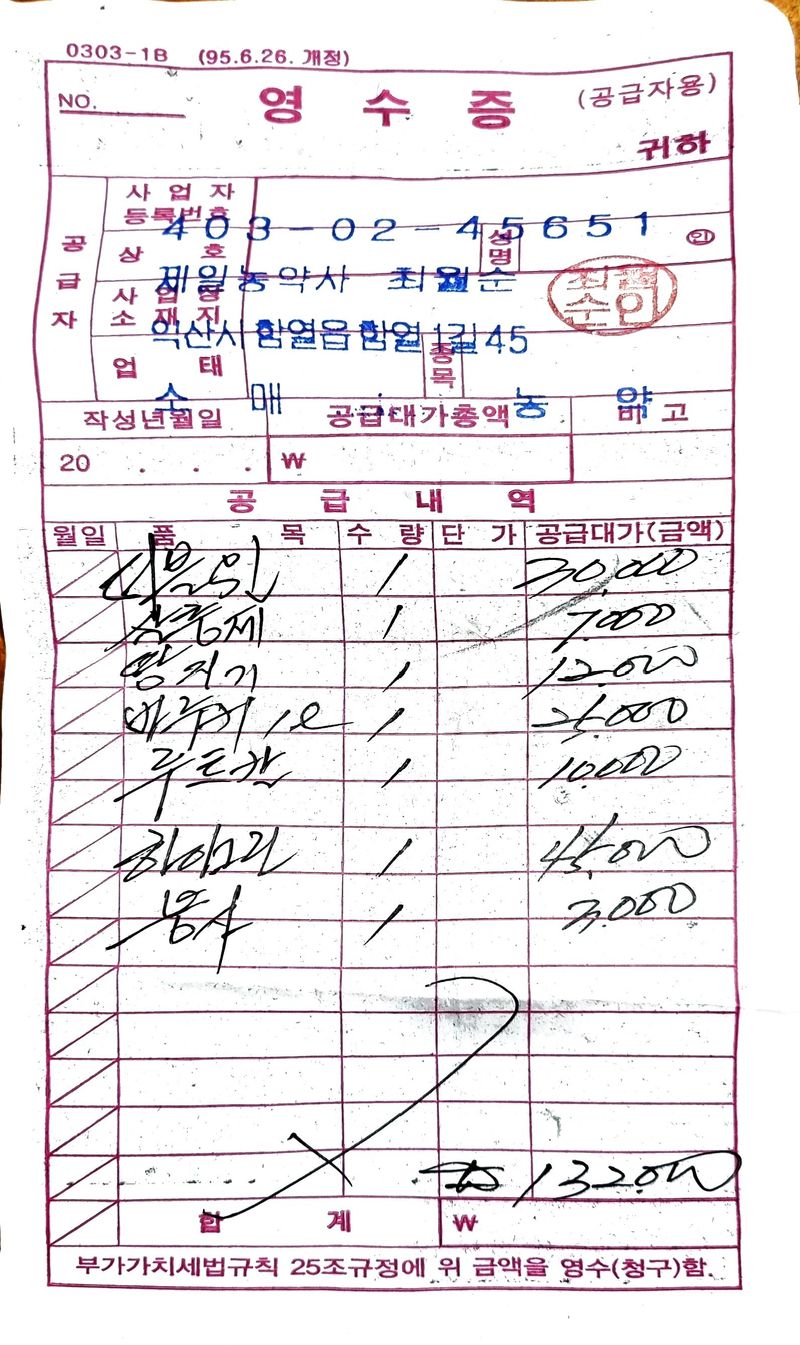 0303-1B (95.6.26. 개정)
NO. 영 수 증 (공급자용)
귀하
공급자
사 업 자 등록번호 403-02-45651
상 호 제일농약사 성명 최월순 ㊞
최월순인
사업장 소재지 익산시 함열읍 함열1길 45
업 태 소 매 종목 농 약
작성년월일 공급대가총액 비 고
20 . . . ₩
공 급 내 역
월일 품 목 수 량 단 가 공급대가(금액)
1 30,000
1 7,000
왕지기 1 12,000
1ℓ 1 25,000
루트칸 1 10,000
1 45,000
붕사 1 3,000
132,000
합 계 ₩
부가가치세법규칙 25조규정에 위 금액을 영수(청구)함.